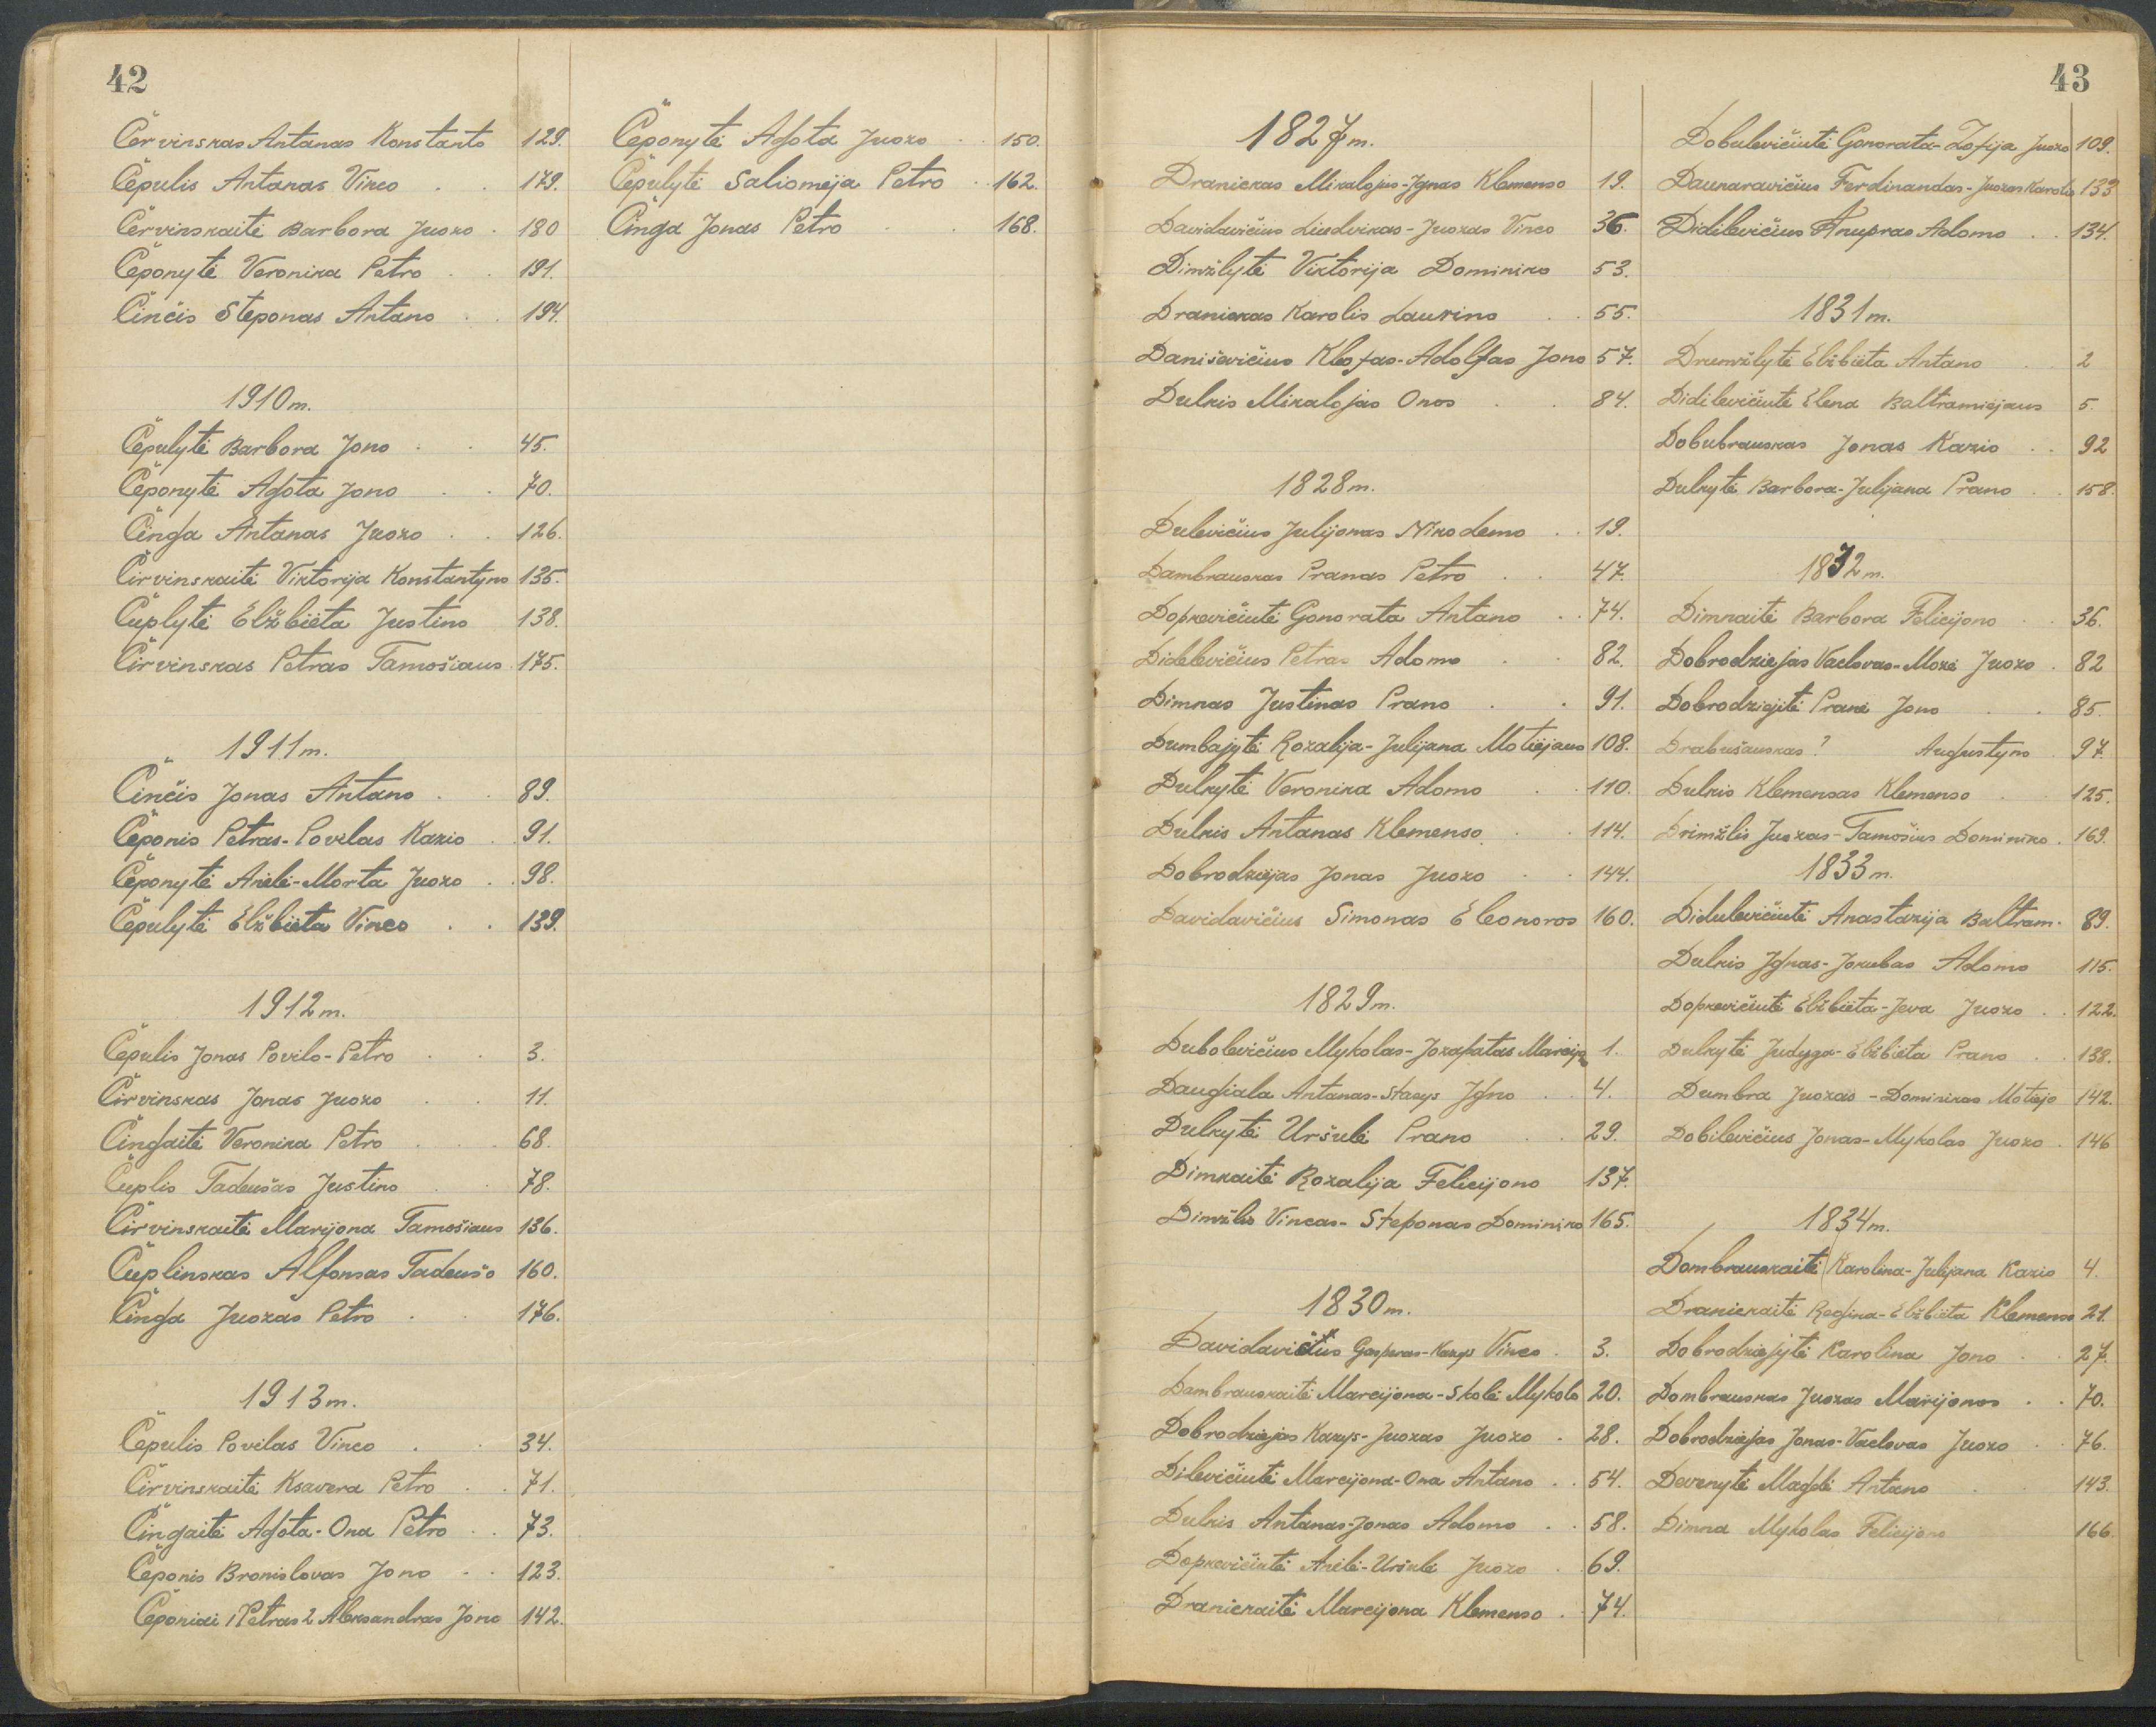 42
Červinskas Antanas Konstanto 129.
Čepulis Antanas Vinco . . 179.
Červinskaitė Barbora Juozo . 180
Čeponytė Veronika Petro . . 191.
Činčis Steponas Antano . . 194.
1910 m.
Čepulytė Barbora Jono . . 45.
Čeponytė Agota Jono . . 70.
Činga Antanas Juozo . . 126.
Čirvinskaitė Viktorija Konstantyno 135.
Čuplytė Elžbieta Justino 138.
Čirvinskas Petras Tamošiaus 175.
1911 m.
Činčis Jonas Antano . . 89.
Čeponis Petras-Povilas Kazio . . 91.
Čeponytė Anelė-Morta Juozo . . 98.
Čepulytė Elžbieta Vinco . . 139.
1912 m.
Čepulis Jonas Povilo-Petro . . 3.
Čirvinskas Jonas Juozo . . 11.
Čingaitė Veronika Petro . . . 68.
Čuplis Tadeušas Justino . . 78.
Čirvinskaitė Marijona Tamošiaus 136.
Čuplinskas Alfonsas Tadeušo 160.
Činga Juozas Petro . . 176.
1913 m.
Čepulis Povilas Vinco . . 34.
Čirvinskaitė Ksavera Petro . . 71.
Čingaitė Agota-Ona Petro . . 73.
Čeponis Bronislovas Jono . . 123.
Čeponiai 1 Petras 2 Aleksandras Jono 142.
Čeponytė Agota Juozo . . 150.
Čepulytė Saliomėja Petro . . 162.
Činga Jonas Petro . . 168.
43
1827 m.
Dranickas Mikalojus-Ignas Klemenso 19.
Davidavičius Liudvikas-Juozas Vinco 36.
Dimžlytė Viktorija Dominiko 53.
Dranickas Karolis Laurino . . 55.
Daniševičius Kleofas-Adolfas Jono 57.
Dulkis Mikalojas Onos . . 84.
1828 m.
Dulevičius Julijonas Nikodemo . . 19.
Dambrauskas Pranas Petro . . 47.
Dopkevičiutė Gonorata Antano . . 74.
Didelevičius Petras Adomo . . 82.
Dimkas Justinas Prano . . 91.
Dumbajytė Rozalija-Julijana Motiejaus 108.
Dulkytė Veronika Adomo . . 110.
Dulkis Antanas Klemenso . . 114.
Dobrodziejas Jonas Juozo . . 144.
Davidavičius Simonas Eleonoros 160.
1829 m.
Dubolevičius Mykolas-Jozapatas Marcijo 1.
Daugiala Antanas-Stasys Igno . . 4.
Dulkytė Uršulė Prano . . 29.
Dimkaitė Rozalija Felicijono 137.
Dimžlis Vincas-Steponas Dominiko 165.
1830 m.
Davidavičius Gasparas-Kazys Vinco . 3.
Dambrauskaitė Marcijona-Skolė Mykolo 20.
Dobrodziejas Kazys-Juozas Juozo . 28.
Dilevičiutė Marcijona-Ona Antano . . 54.
Dulkis Antanas-Jonas Adomo . . 58.
Dopkevičiutė Anelė-Uršulė Juozo . . 69.
Dranickaitė Marcijona Klemenso . . 74.
Dobulevičiutė Gonorata-Zofija Juozo 109.
Daukaravičius Ferdinandas-Juozas Karolio 133
Didilevičius Anupras Adomo . . 134.
1831 m.
Drumžlytė Elžbieta Antano . . 2
Didilevičiutė Elena Baltramiejaus 5.
Dobubrauskas Jonas Kazio . . 92
Dulkytė Barbora-Julijana Prano . . 158.
1832 m.
Dimkaitė Barbora Felicijono . . 36.
Dobrodziejas Vaclovas-Mozė Juozo . 82
Dobrodziejitė Pranė Jono . . 85.
Drabušauskas ? Augustyno . 97.
Dulkis Klemensas Klemenso . . 125.
Drimžlis Juozas-Tamošius Dominiko . 169.
1833 m.
Didulevičiutė Anastazija Baltram. 89.
Dulkis Ignas-Jokubas Adomo 115.
Dopkevičiutė Elžbieta-Jeva Juozo . . 122.
Dulkytė Judyga-Elžbieta Prano . . 138.
Dumbra Juozas-Dominikas Motiejo 142.
Dobilevičius Jonas-Mykolas Juozo . 146
1834 m.
Dombrauskaitė Karolina-Julijana Kazio 4.
Dranickaitė Regina-Elžbieta Klemenso 21.
Dobrodziejytė Karolina Jono . . 27.
Dombrauskas Juozas Marijonos . . 70.
Dobrodziejas Jonas-Vaclovas Juozo . . 76.
Devenytė Magdė Antano . . 143.
Dimna Mykolas Felicijono 166.